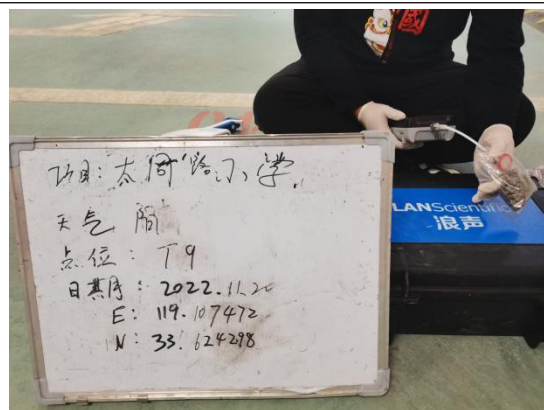 项目：太阁路小学
天气 阴
点位：T9
日期：2022.11.20
E：119.107472
N：33.624298
國
LANScientific
浪声